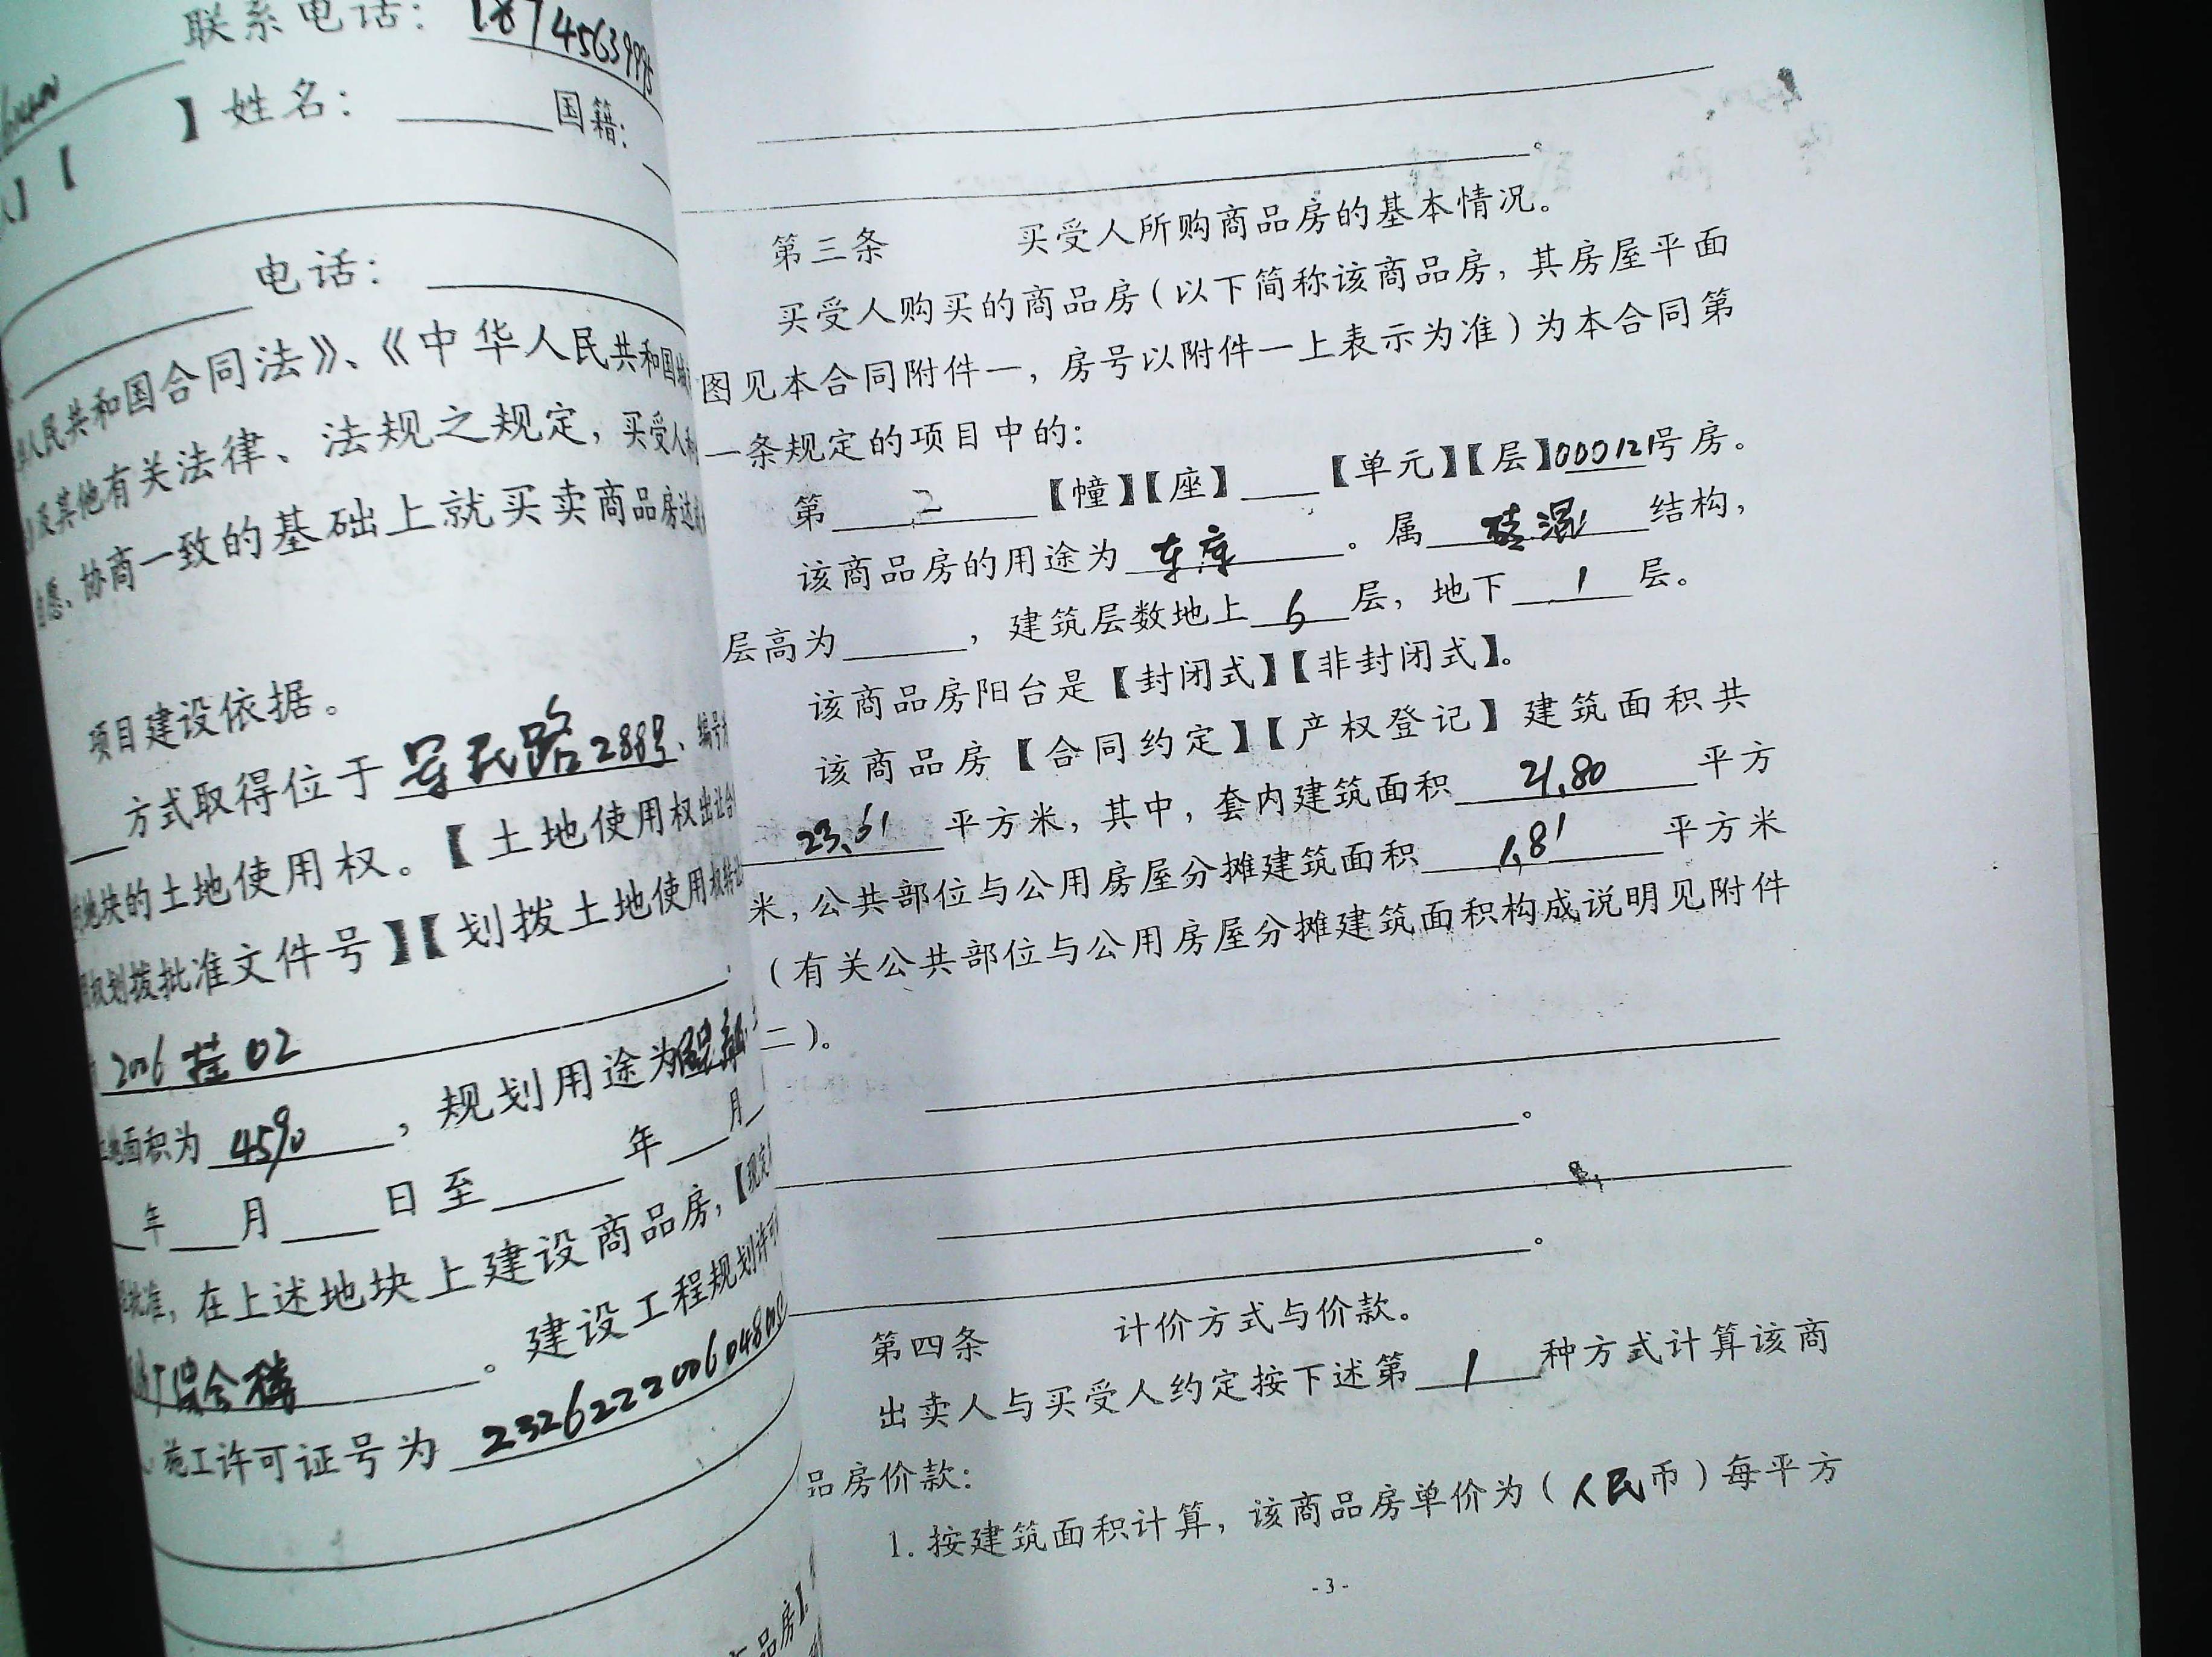 联系电话：
】姓名：______国籍：
】【
电话：
人民共和国合同法》、《中华人民共和国
及其他有关法律、法规之规定，买受人
协商一致的基础上就买卖商品房达
项目建设依据。
方式取得位于 军民路288号、编号
地块的土地使用权。【土地使用权出让合
划拨批准文件号】【划拨土地使用权转让
2006挂02
面积为 4590，规划用途为
年___月___日至___年___月
批准，在上述地块上建设商品房，【现定
综合楼。建设工程规划许可
施工许可证号为
品房】
。
第三条 买受人所购商品房的基本情况。
买受人购买的商品房（以下简称该商品房，其房屋平面
图见本合同附件一，房号以附件一上表示为准）为本合同第
一条规定的项目中的：
第 2 【幢】【座】____【单元】【层】000121号房。
该商品房的用途为 车库。属 砖混 结构，
层高为____，建筑层数地上 6 层，地下 1 层。
该商品房阳台是【封闭式】【非封闭式】。
该商品房【合同约定】【产权登记】建筑面积共
23.61 平方米，其中，套内建筑面积 21.80 平方
米，公共部位与公用房屋分摊建筑面积 1.81 平方米
（有关公共部位与公用房屋分摊建筑面积构成说明见附件
二）。
。
。
第四条 计价方式与价款。
出卖人与买受人约定按下述第 1 种方式计算该商
品房价款：
1. 按建筑面积计算，该商品房单价为（人民币）每平方
-3-